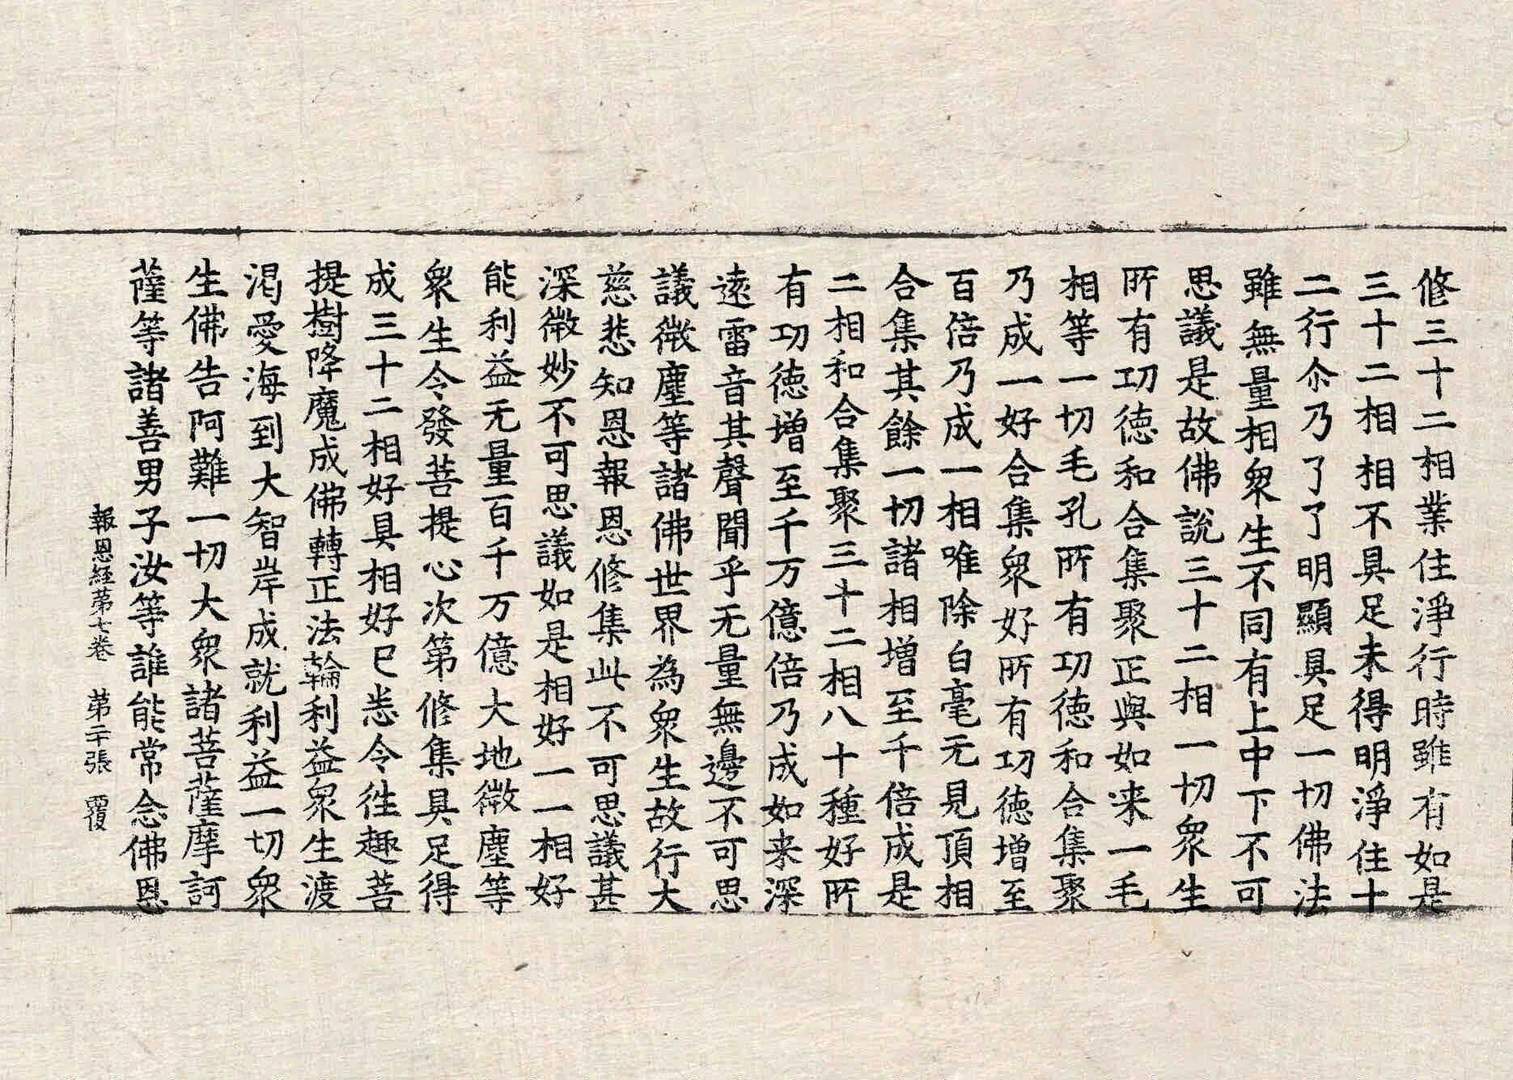 修三十二相業住淨行時雖有如是
三十二相相不具足未得明淨住十
二行尒乃了了明顯具足一切佛法
雖無量相衆生不同有上中下不可
思議是故佛說三十二相一切衆生
所有功德和合集聚正與如来一毛
相等一切毛孔所有功德和合集聚
乃成一好合集衆好所有功德增至
百倍乃成一相唯除白毫无見頂相
合集其餘一切諸相增至千倍成是
二相和合集聚三十二相八十種好所
有功德增至千万億倍乃成如来深
遠雷音其聲聞乎无量無邊不可思
議微塵等諸佛世界為衆生故行大
慈悲知恩報恩修集此不可思議甚
深微妙不可思議如是相好一一相好
能利益无量百千万億大地微塵等
衆生令發菩提心次第修集具足得
成三十二相好具相好已悉令徃趣菩
提樹降魔成佛轉正法輪利益衆生渡
渇愛海到大智岸成就利益一切衆
生佛告阿難一切大衆諸菩薩摩訶
薩等諸善男子汝等誰能常念佛恩
報恩経苐七卷 苐二十張 覆